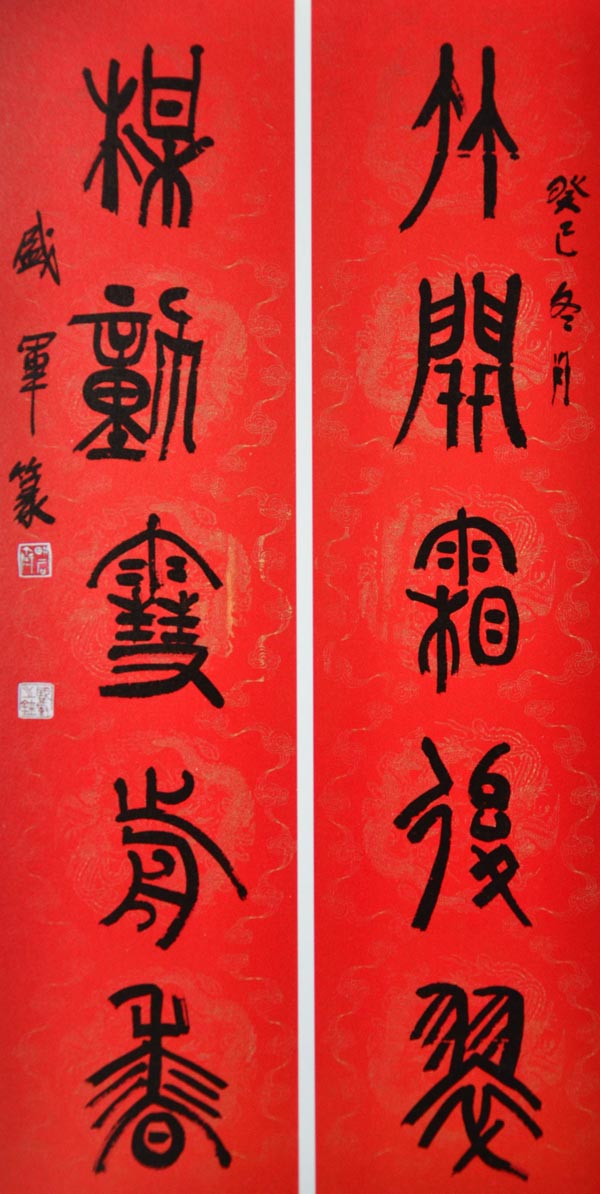 癸巳冬月
竹開霜後翠
楳動雪前香
盛軍篆